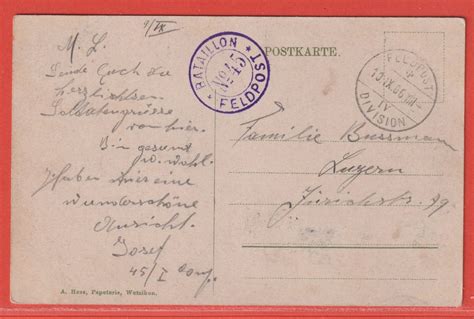 9/IX
M. L.
Sende Euch die
herzlichsten
Soldatengrüsse
von hier.
Bin gesund
u. wohl.
Haben hier eine
wunderschöne
Aussicht.
Josef
45/I Comp.
BATAILLON
No 45
FELDPOST
POSTKARTE.
FELDPOST
10.IX.05
IV
DIVISION
Familie Bussmann
Luzern
Zürichstr. 79.
A. Hess, Papeterie, Wetzikon.